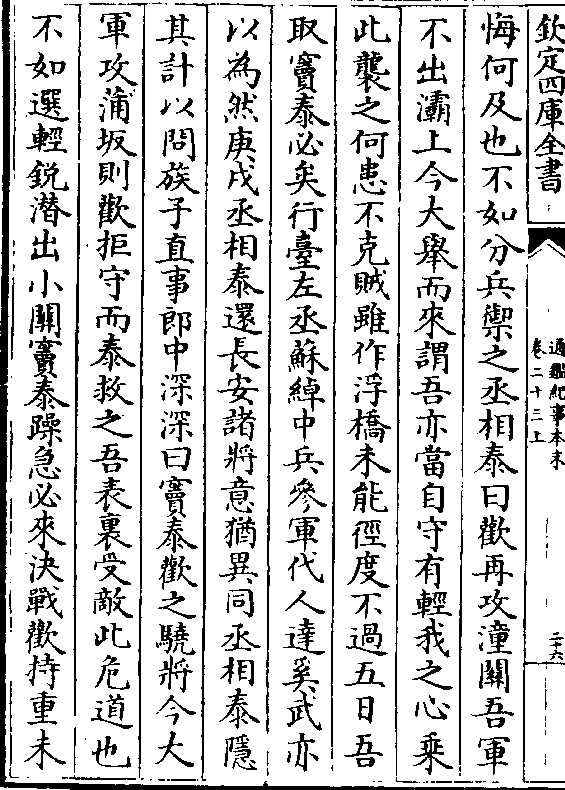 欽定四庫全書
通鑑紀事本末
卷二十三上
二十六
悔何及也不如分兵禦之丞相泰曰歡再攻潼關吾軍
不出灞上今大舉而來謂吾亦當自守有輕我之心乘
此襲之何患不克賊雖作浮橋未能徑度不過五日吾
取竇泰必矣行臺左丞蘇綽中兵參軍代人達奚武亦
以為然庚戌丞相泰還長安諸將意猶異同丞相泰隱
其計以問族子直事郎中深深曰竇泰歡之驍將今大
軍攻蒲坂則歡拒守而泰救之吾表裏受敵此危道也
不如選輕銳潛出小關竇泰躁急必來決戰歡持重未